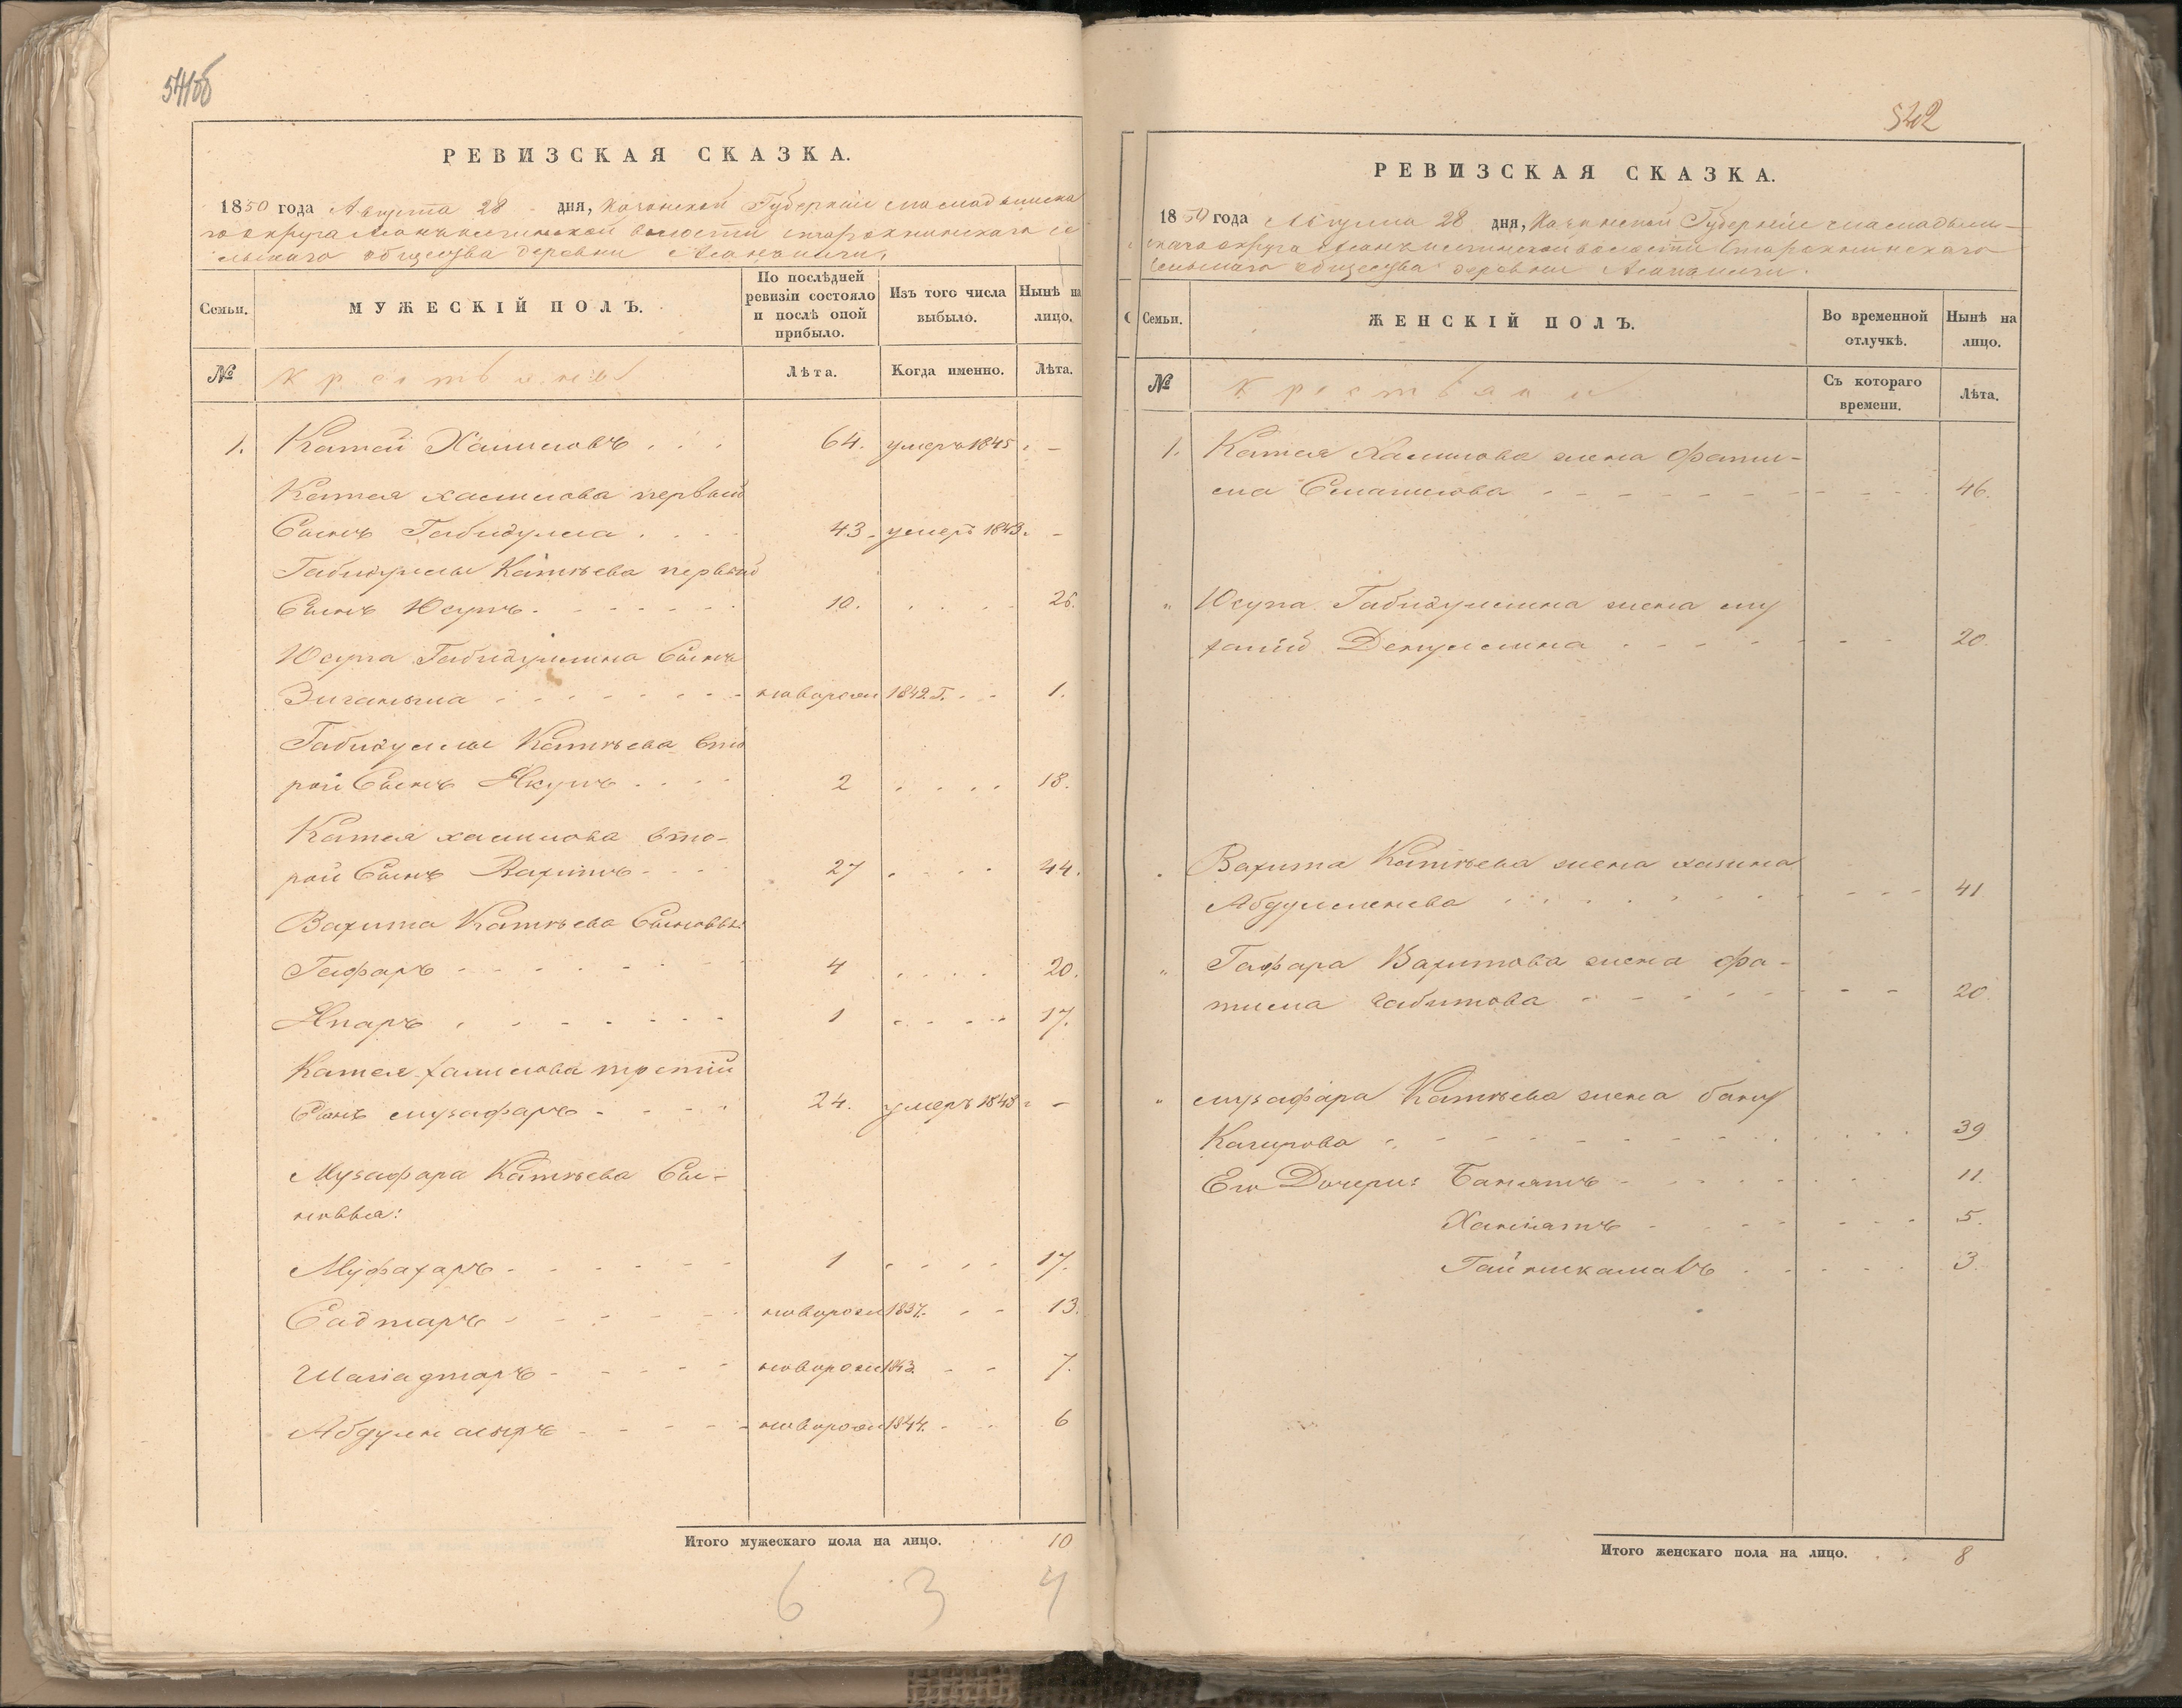 541об
РЕВИЗСКАЯ СКАЗКА.
1850 года Августа 28 дня, Казанской Губернии Мамадышска
го округа волости
льскаго общества деревни
Семьи.
МУЖЕСКІЙ ПОЛЪ.
По послѣдней ревизіи состояло и послѣ оной прибыло.
Изъ того числа выбыло.
Нынѣ на лицо.
№
Крестьяне
Лѣта.
Когда именно.
Лѣта.
1. Катей Халиловъ 64. умеръ 1845 -
Катея халилова первый
Сынъ Габидулла 43. умеръ 1843. -
Габидуллы Катѣева первый
Сынъ Юсупъ 10. 26.
Юсупа Габидуллина Сынъ
Зиганьша новорож 1842 Г. 1.
Габидуллы Катѣева вто
рой Сынъ Якупъ 2 18.
Катея халилова вто-
рой Сынъ Вахитъ 27 44.
Вахита Катѣева Сыновья:
Гафаръ 4 20.
Япаръ 1 17.
Катея халилова третій
Сынъ музафаръ 24. умеръ 1848 -
Музафара Катѣева Сы-
новья:
Муфахаръ 1 17.
Садтаръ новорож 1837. 13.
Шагіадтаръ новорож 1843 7.
новорож 1844. 6
Итого мужескаго пола на лицо. 10
6 3 7
542
РЕВИЗСКАЯ СКАЗКА.
1850 года Августа 28 дня, Казанской Губерніи Мамадыш-
скаго округа волости
Сельскаго общества деревни
Семьи.
ЖЕНСКІЙ ПОЛЪ.
Во временной отлучкѣ.
Нынѣ на лицо.
№
Крестьяне
Съ котораго времени.
Лѣта.
1. Катея Халилова жена Фати-
ма Смаилова 46.
" Юсупа Габидуллина жена
20.
Вахита Катѣева жена
41
" Гафара Вахитова жена Фа-
тима Габитова 20.
" музафара Катѣева жена бану
39
Его Дочери: 11.
5.
3
Итого женскаго пола на лицо. 8